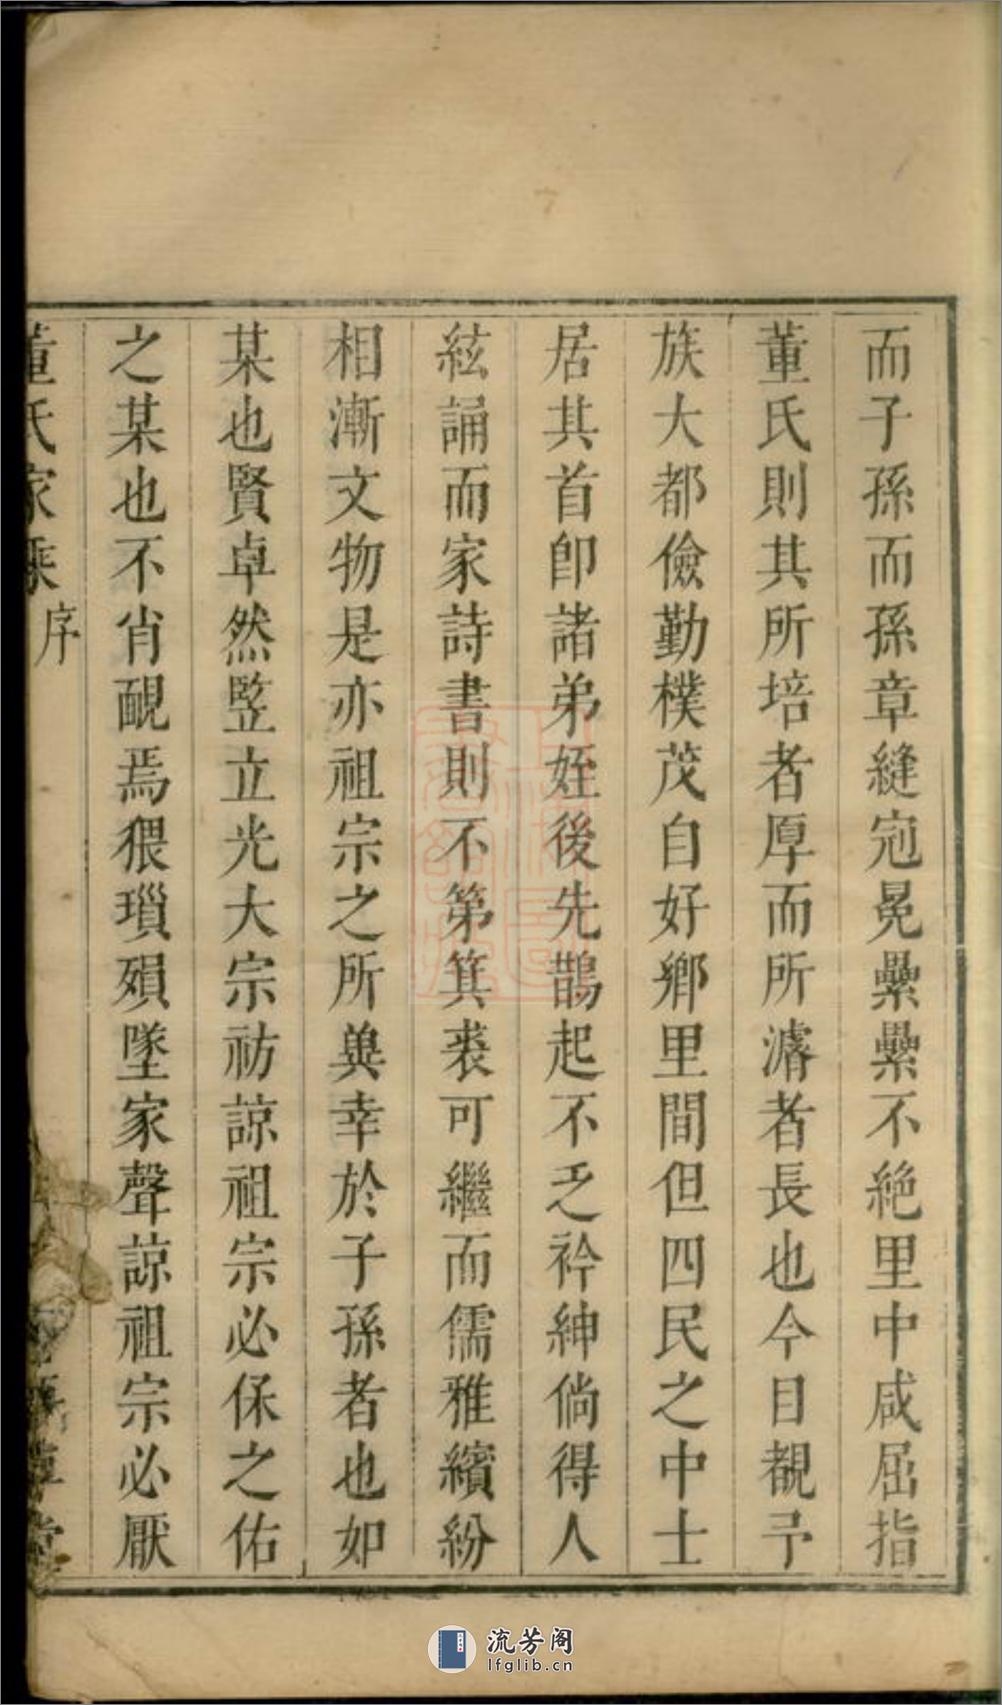 而子孫而孫章縫冠冕纍纍不絶里中咸屈指
董氏則其所培者厚而所濬者長也今目覩予
族大都儉勤樸茂自好鄉里間但四民之中士
居其首即諸弟姪後先鵲起不乏衿紳倘得人
絃誦而家詩書則不第箕裘可繼而儒雅繽紛
相漸文物是亦祖宗之所兾幸於子孫者也如
某也賢卓然竪立光大宗祊諒祖宗必保之佑
之某也不肖靦焉猥瑣殞墜家聲諒祖宗必厭
董氏家乘
序
草堂
流芳阁
lfglib.cn